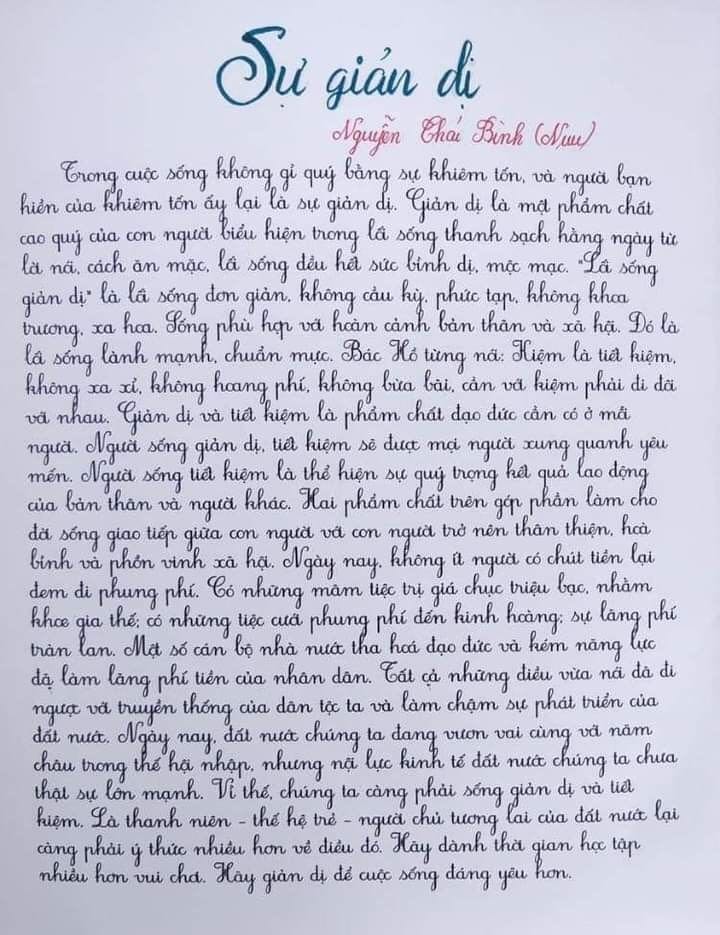 Sự giản dị
Nguyễn Thái Bình (Nuu)
Trong cuộc sống không gì quý bằng sự khiêm tốn, và người bạn
hiền của khiêm tốn ấy lại là sự giản dị. Giản dị là một phẩm chất
cao quý của con người biểu hiện trong lối sống thanh sạch hằng ngày từ
lời nói, cách ăn mặc, lối sống đều hết sức bình dị, mộc mạc. "Lối sống
giản dị" là lối sống đơn giản, không cầu kỳ, phức tạp, không khoa
trương, xa hoa. Sống phù hợp với hoàn cảnh bản thân và xã hội. Đó là
lối sống lành mạnh, chuẩn mực. Bác Hồ từng nói: Kiệm là tiết kiệm,
không xa xỉ, không hoang phí, không bừa bãi, cần với kiệm phải đi đôi
với nhau. Giản dị và tiết kiệm là phẩm chất đạo đức cần có ở mỗi
người. Người sống giản dị, tiết kiệm sẽ được mọi người xung quanh yêu
mến. Người sống tiết kiệm là thể hiện sự quý trọng kết quả lao động
của bản thân và người khác. Hai phẩm chất trên góp phần làm cho
đời sống giao tiếp giữa con người với con người trở nên thân thiện, hoà
bình và phồn vinh xã hội. Ngày nay, không ít người có chút tiền lại
đem đi phung phí. Có những mâm tiệc trị giá chục triệu bạc, nhằm
khoe gia thế; có những tiệc cưới phung phí đến kinh hoàng; sự lãng phí
tràn lan. Một số cán bộ nhà nước tha hoá đạo đức và kém năng lực
đã làm lãng phí tiền của nhân dân. Tất cả những điều vừa nói đã đi
ngược với truyền thống của dân tộc ta và làm chậm sự phát triển của
đất nước. Ngày nay, đất nước chúng ta đang vươn vai cùng với năm
châu trong thế hội nhập, nhưng nội lực kinh tế đất nước chúng ta chưa
thật sự lớn mạnh. Vì thế, chúng ta càng phải sống giản dị và tiết
kiệm. Là thanh niên - thế hệ trẻ - người chủ tương lai của đất nước lại
càng phải ý thức nhiều hơn về điều đó. Hãy dành thời gian học tập
nhiều hơn vui chơi. Hãy giản dị để cuộc sống đáng yêu hơn.